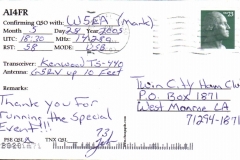 AI4FR
Confirming QSO with: W5EA (Mark)
Month 5 Day 28 Year 2005
UTC: 18:20 MHz: 14.250
RST: 58 MODE USB
Transceiver: Kenwood TS-440
Antenna: G5RV up 10 Feet
Remarks:
Thank You for
running the Special
Event!!!
73
PSE QSL TNX QSL
Twin City Ham Club
P.O. Box 1871
West Monroe LA
71294-1871
23